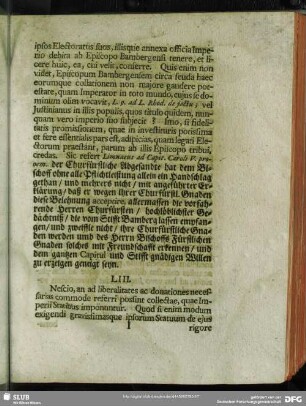 ipsos Electoratus suos, illisque annexa officia Impe-
rio debita ab Episcopo Bambergensi tenere, et li-
cere huic, ea, cui velit, conferre. Quis enim non
videt, Episcopum Bambergensem circa feuda haec
eorumque collationem non majore gaudere pot-
estate, quam Imperator in toto mundo, cujus se do-
minium olim vocavit, L. 9. ad L. Rhod. de jactu; vel
Justinianus in illis populis, quos titulo quidem, nun-
quam vero imperio suo subjecit ? Imo, si fidelita-
tis promissionem, quae in investituris potissima
et fere essentialis pars est, adipicias, quam legati Elec-
torum praestant, parum ab illis Episcopo tribui,
credas. Sic refert Limnaeus ad Capit. Caroli V. pro-
oem. der Churfürstliche Abgesandte hat dem Bi-
schoff ohne alle Pflichtleistung allein ein Handschlag
gethan/ und mehrers nicht / mit angeführter Er-
klärung/ daß er wegen ihrer Churfürstl. Gnaden
diese Belehnung accepire, allermassen die vorfah-
rende Herren Churfürsten / hochlöblichster Ge-
dächtniß/ die vom Stifft Bamberg lassen empfan-
gen/ und zweiffle nicht/ ihre Churfürstliche Gna-
den werden und des Herrn Bischoffs Fürstlichen
Gnaden solches mit Freundschafft erkennen/ und
dem gantzen Capitul und Stifft gnädigen Willen
zu erzeigen geneigt seyn.
LIII.
Nescio, an ad liberalitates ac donationes neces-
sarias commode referri possint collectae, quae Im-
perii Statibus imponuntur. Quod si enim modum
exigendi gravissimasque ipsorum Statuum de ejus
I
rigore
SLUB
Wir führen Wissen.
gefördert von der
Deutschen Forschungsgemeinschaft
DFG